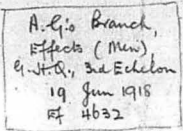 A.G's Branch,
Effects (Men),
G.H.Q., 3rd Echelon
19 Jun 1918
Ef 4632